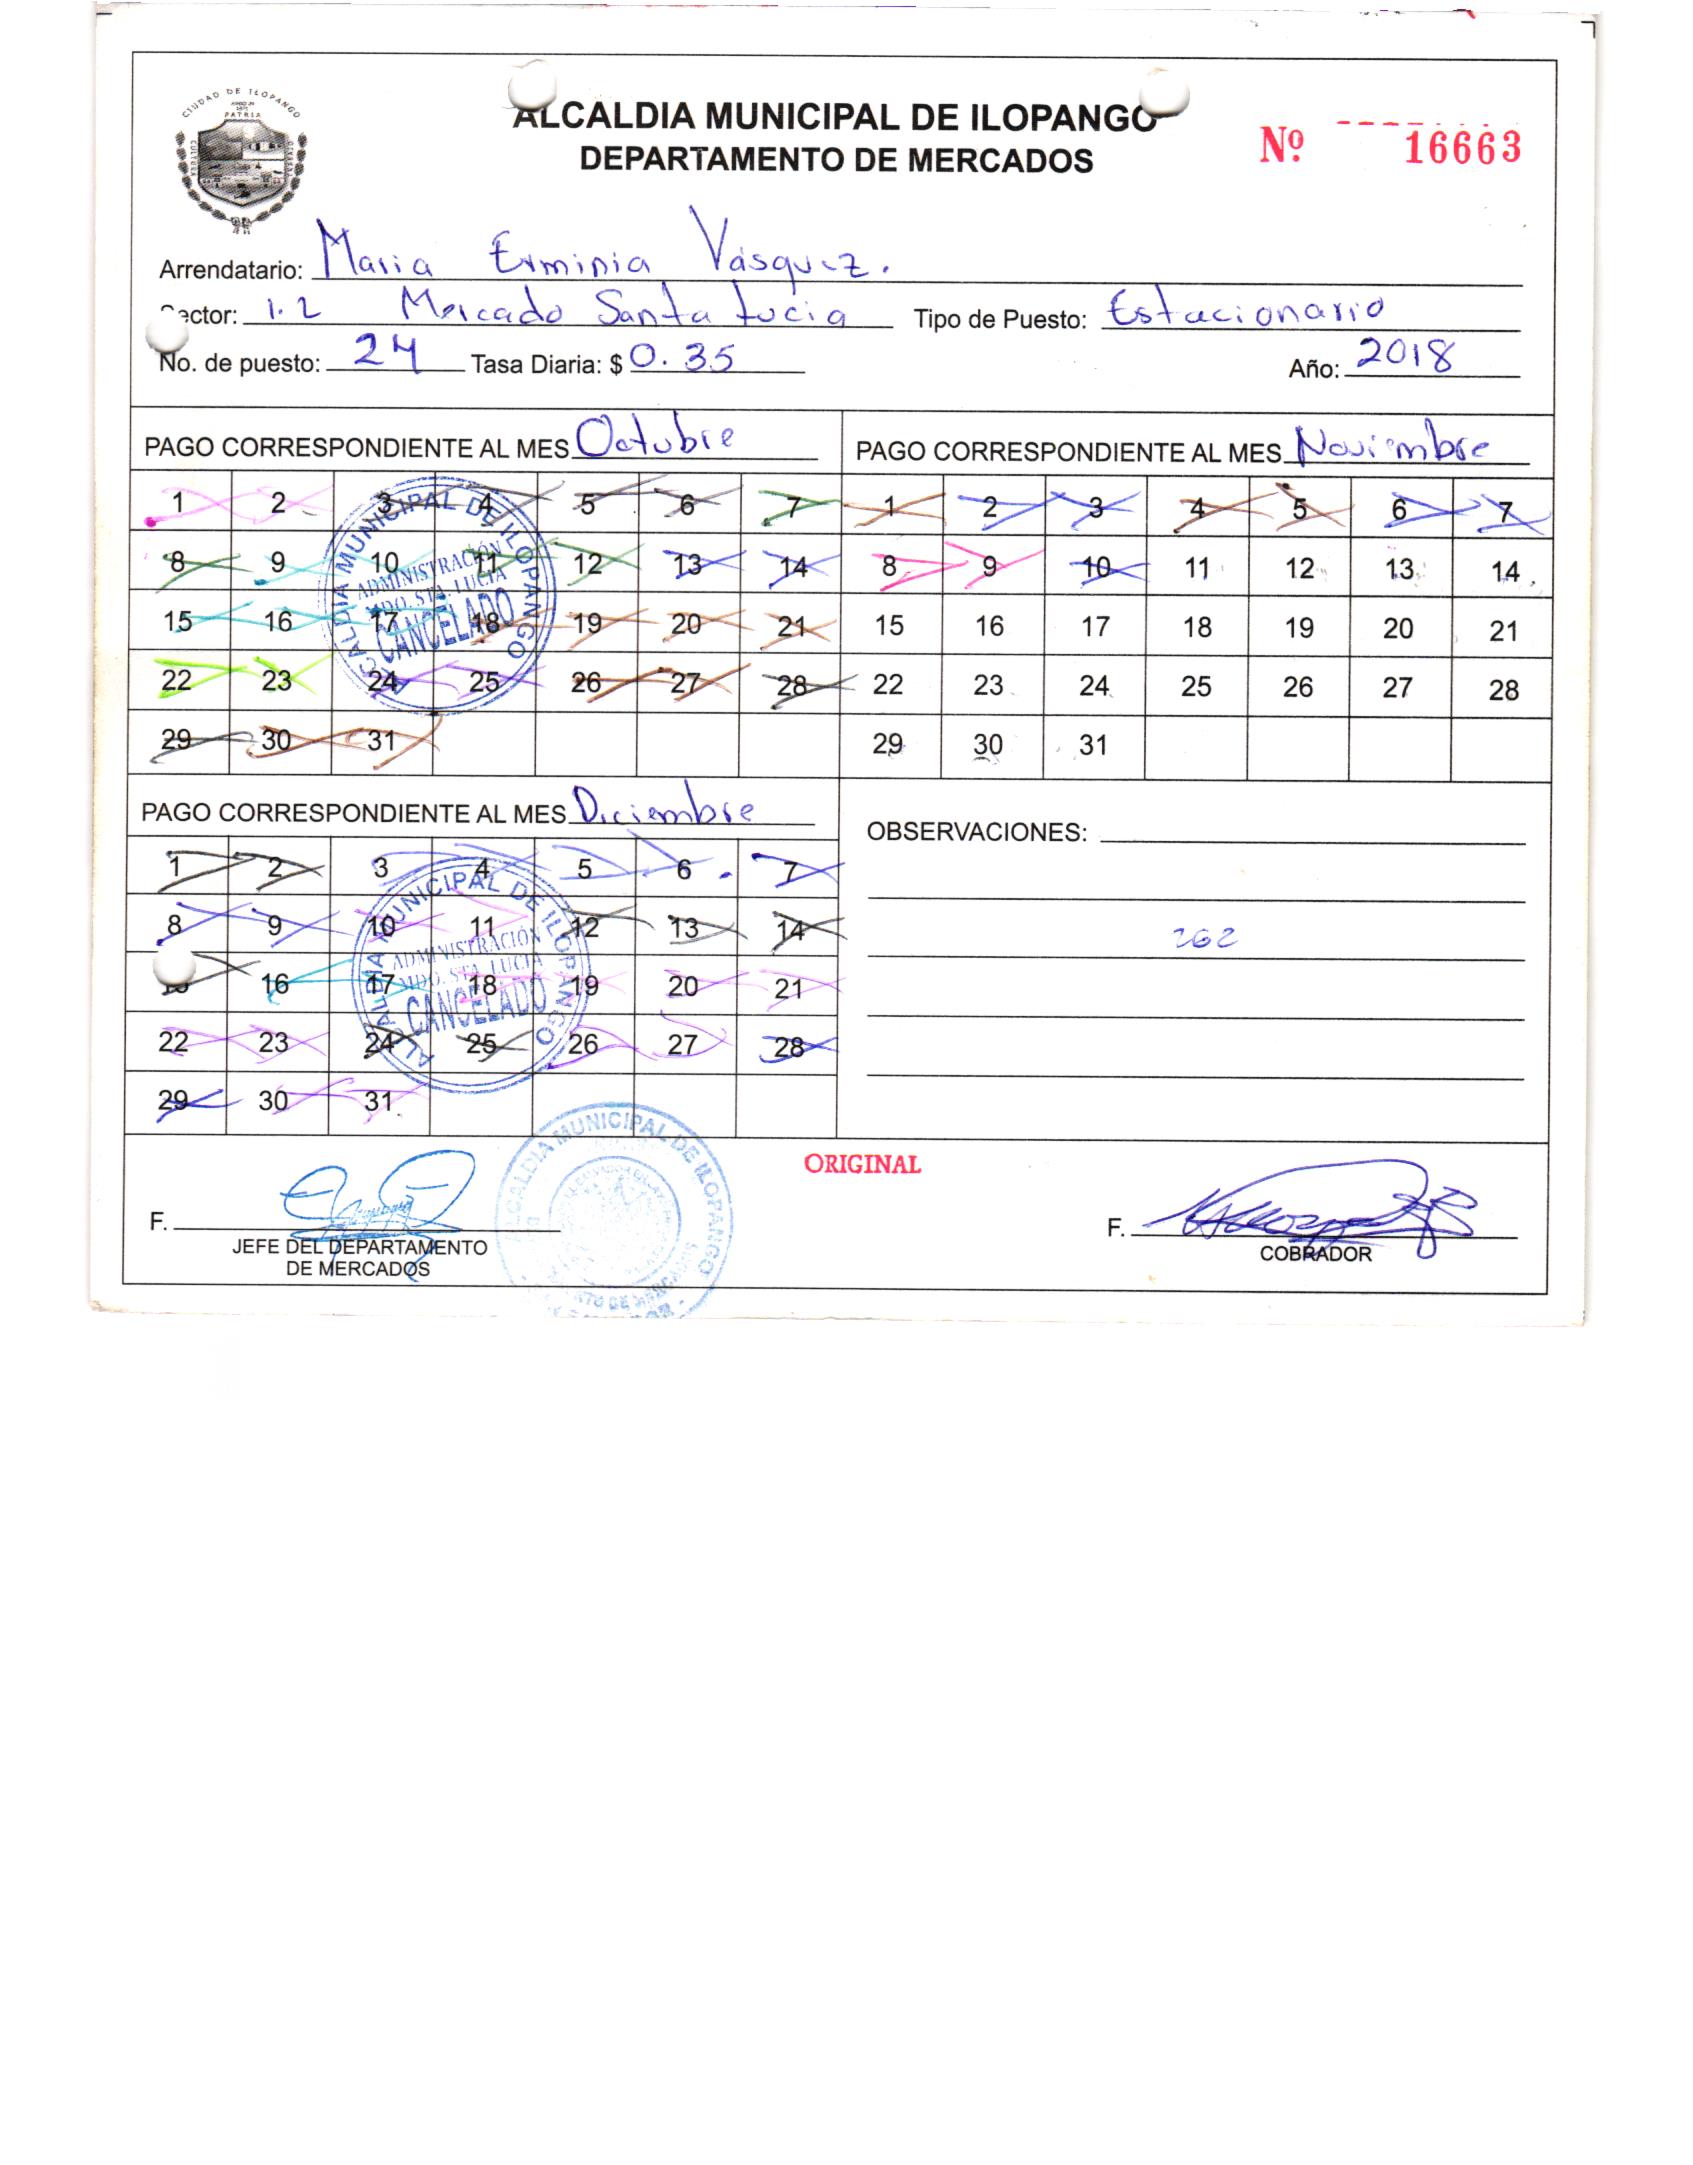 CIUDAD DE ILOPANGO
PATRIA
ALCALDIA MUNICIPAL DE ILOPANGO
DEPARTAMENTO DE MERCADOS
Nº 16663
Arrendatario: Maria Erminia Vásquez.
Sector: 1.2 Mercado Santa Lucia Tipo de Puesto: Estacionario
No. de puesto: 24 Tasa Diaria: $ 0.35 Año: 2018
PAGO CORRESPONDIENTE AL MES Octubre
1 2 3 4 5 6 7
8 9 10 11 12 13 14
15 16 17 18 19 20 21
22 23 24 25 26 27 28
29 30 31
ALCALDIA MUNICIPAL DE ILOPANGO
ADMINISTRACIÓN
MDO. STA. LUCIA
CANCELADO
PAGO CORRESPONDIENTE AL MES Noviembre
1 2 3 4 5 6 7
8 9 10 11 12 13 14
15 16 17 18 19 20 21
22 23 24 25 26 27 28
29 30 31
PAGO CORRESPONDIENTE AL MES Diciembre
1 2 3 4 5 6 7
8 9 10 11 12 13 14
15 16 17 18 19 20 21
22 23 24 25 26 27 28
29 30 31
ALCALDIA MUNICIPAL DE ILOPANGO
ADMINISTRACIÓN
MDO. STA. LUCIA
CANCELADO
OBSERVACIONES:
262
ORIGINAL
F.
JEFE DEL DEPARTAMENTO
DE MERCADOS
ALCALDIA MUNICIPAL DE ILOPANGO
F.
COBRADOR